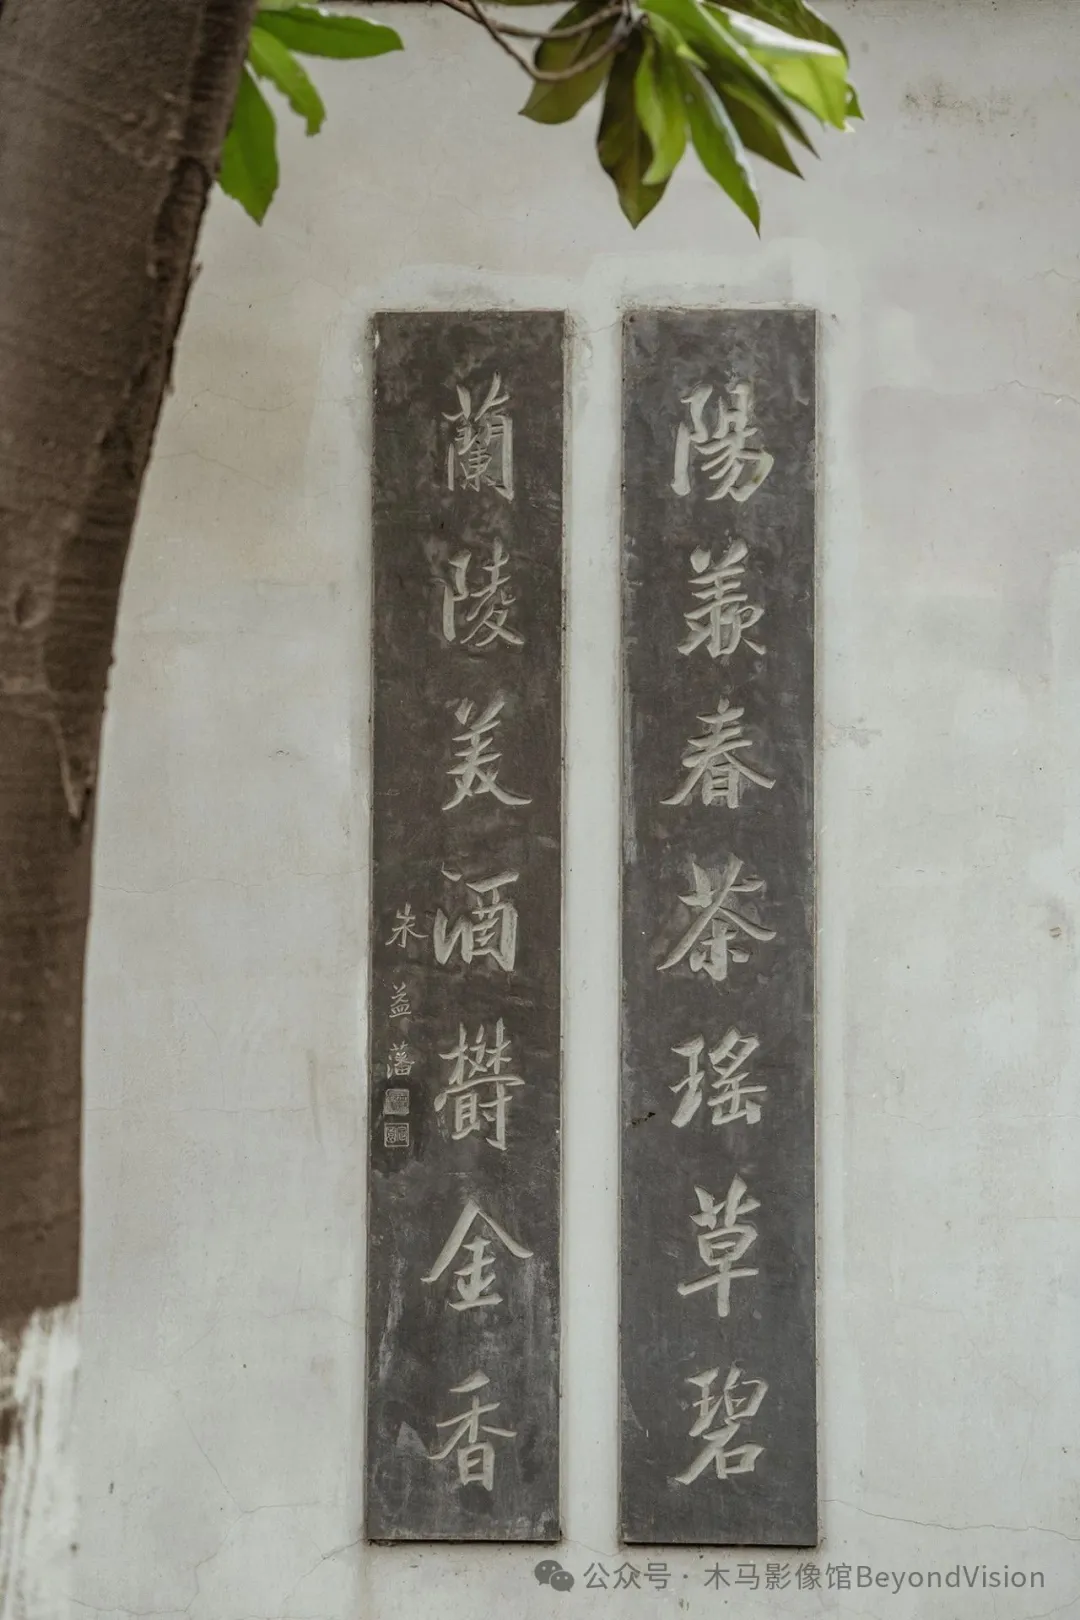 陽羨春茶瑤草碧
蘭陵美酒欝金香
朱益藩
公众号 · 木马影像馆BeyondVision